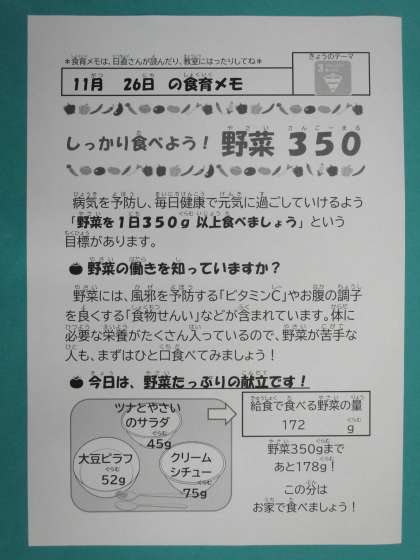 ＊食育メモは、日直さんが読んだり、教室にはったりしてね＊
きょうのテーマ
11月　26日　の食育メモ
しっかり食べよう！ 野菜 350
病気を予防し、毎日健康で元気に過ごしていけるよう
「野菜を1日350g以上食べましょう」という
目標があります。
野菜の働きを知っていますか？
野菜には、風邪を予防する「ビタミンC」やお腹の調子
を良くする「食物せんい」などが含まれています。体に
必要な栄養がたくさん入っているので、野菜が苦手な
人も、まずはひと口食べてみましょう！
今日は、野菜たっぷりの献立です！
ツナとやさい
のサラダ
45g
大豆ピラフ
52g
クリーム
シチュー
75g
給食で食べる野菜の量
172　g
野菜350gまで
あと178g！
この分は
お家で食べましょう！